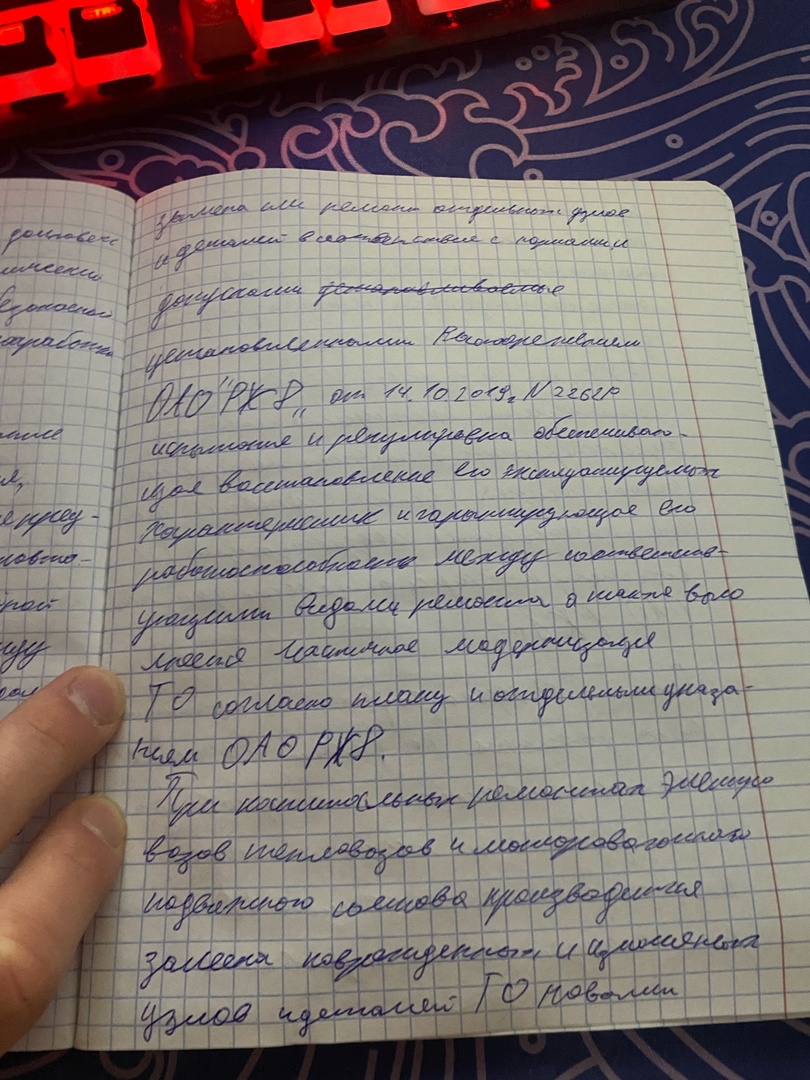 долговеч
езопасной
разработки
ре пред-
замена или ремонт отдельных узлов
и деталей в соответствие с нормами и
допусками устанавливаемые
установленными Распоряжением
ОАО "РЖД" от 14.10.2019г N2262р
испытание и регулировка обеспечиваю-
щая восстановление его эксплуатируемых
характеристик и гарантирующая его
работоспособность между соответств-
ующими видами ремонта а также выпо
лняется частичное модернизация
ТО согласно плану и отдельными указа-
нием ОАО РЖД.
При капитальных ремонтах электро
возов тепловозов и моторовагонного
подвижного состава производится
замена поврежденных и изношеных
узлов и деталей ТО новыми